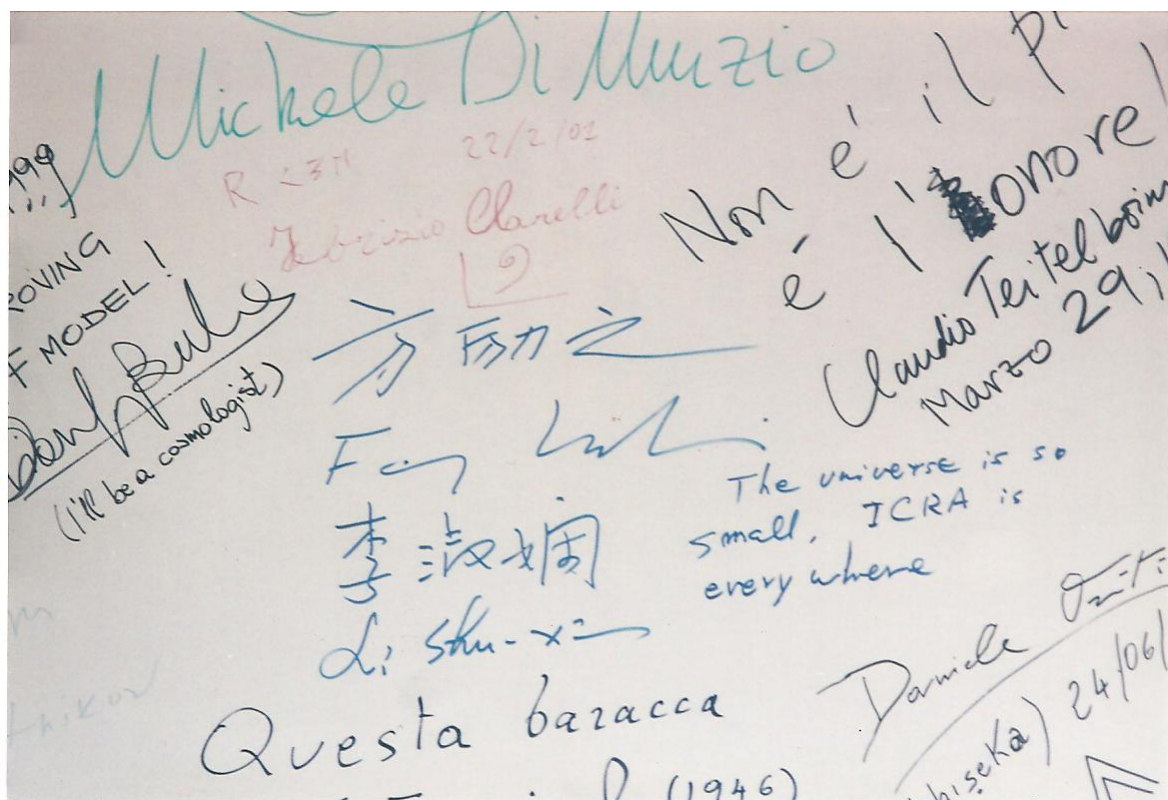 Michele Di Muzio
R <3M 22/2/01
Fabrizio Clarelli
9
1999
ROVING
F MODEL!
(I'll be a cosmologist)
Non é il
é l'onore!
Claudio Teitelboim
Marzo 29,
方励之
Fang
李淑娴
Li Shu-xian
The universe is so
small, ICRA is
everywhere
Daniele
24/06/
hiseKa)
Questa baracca
(1946)